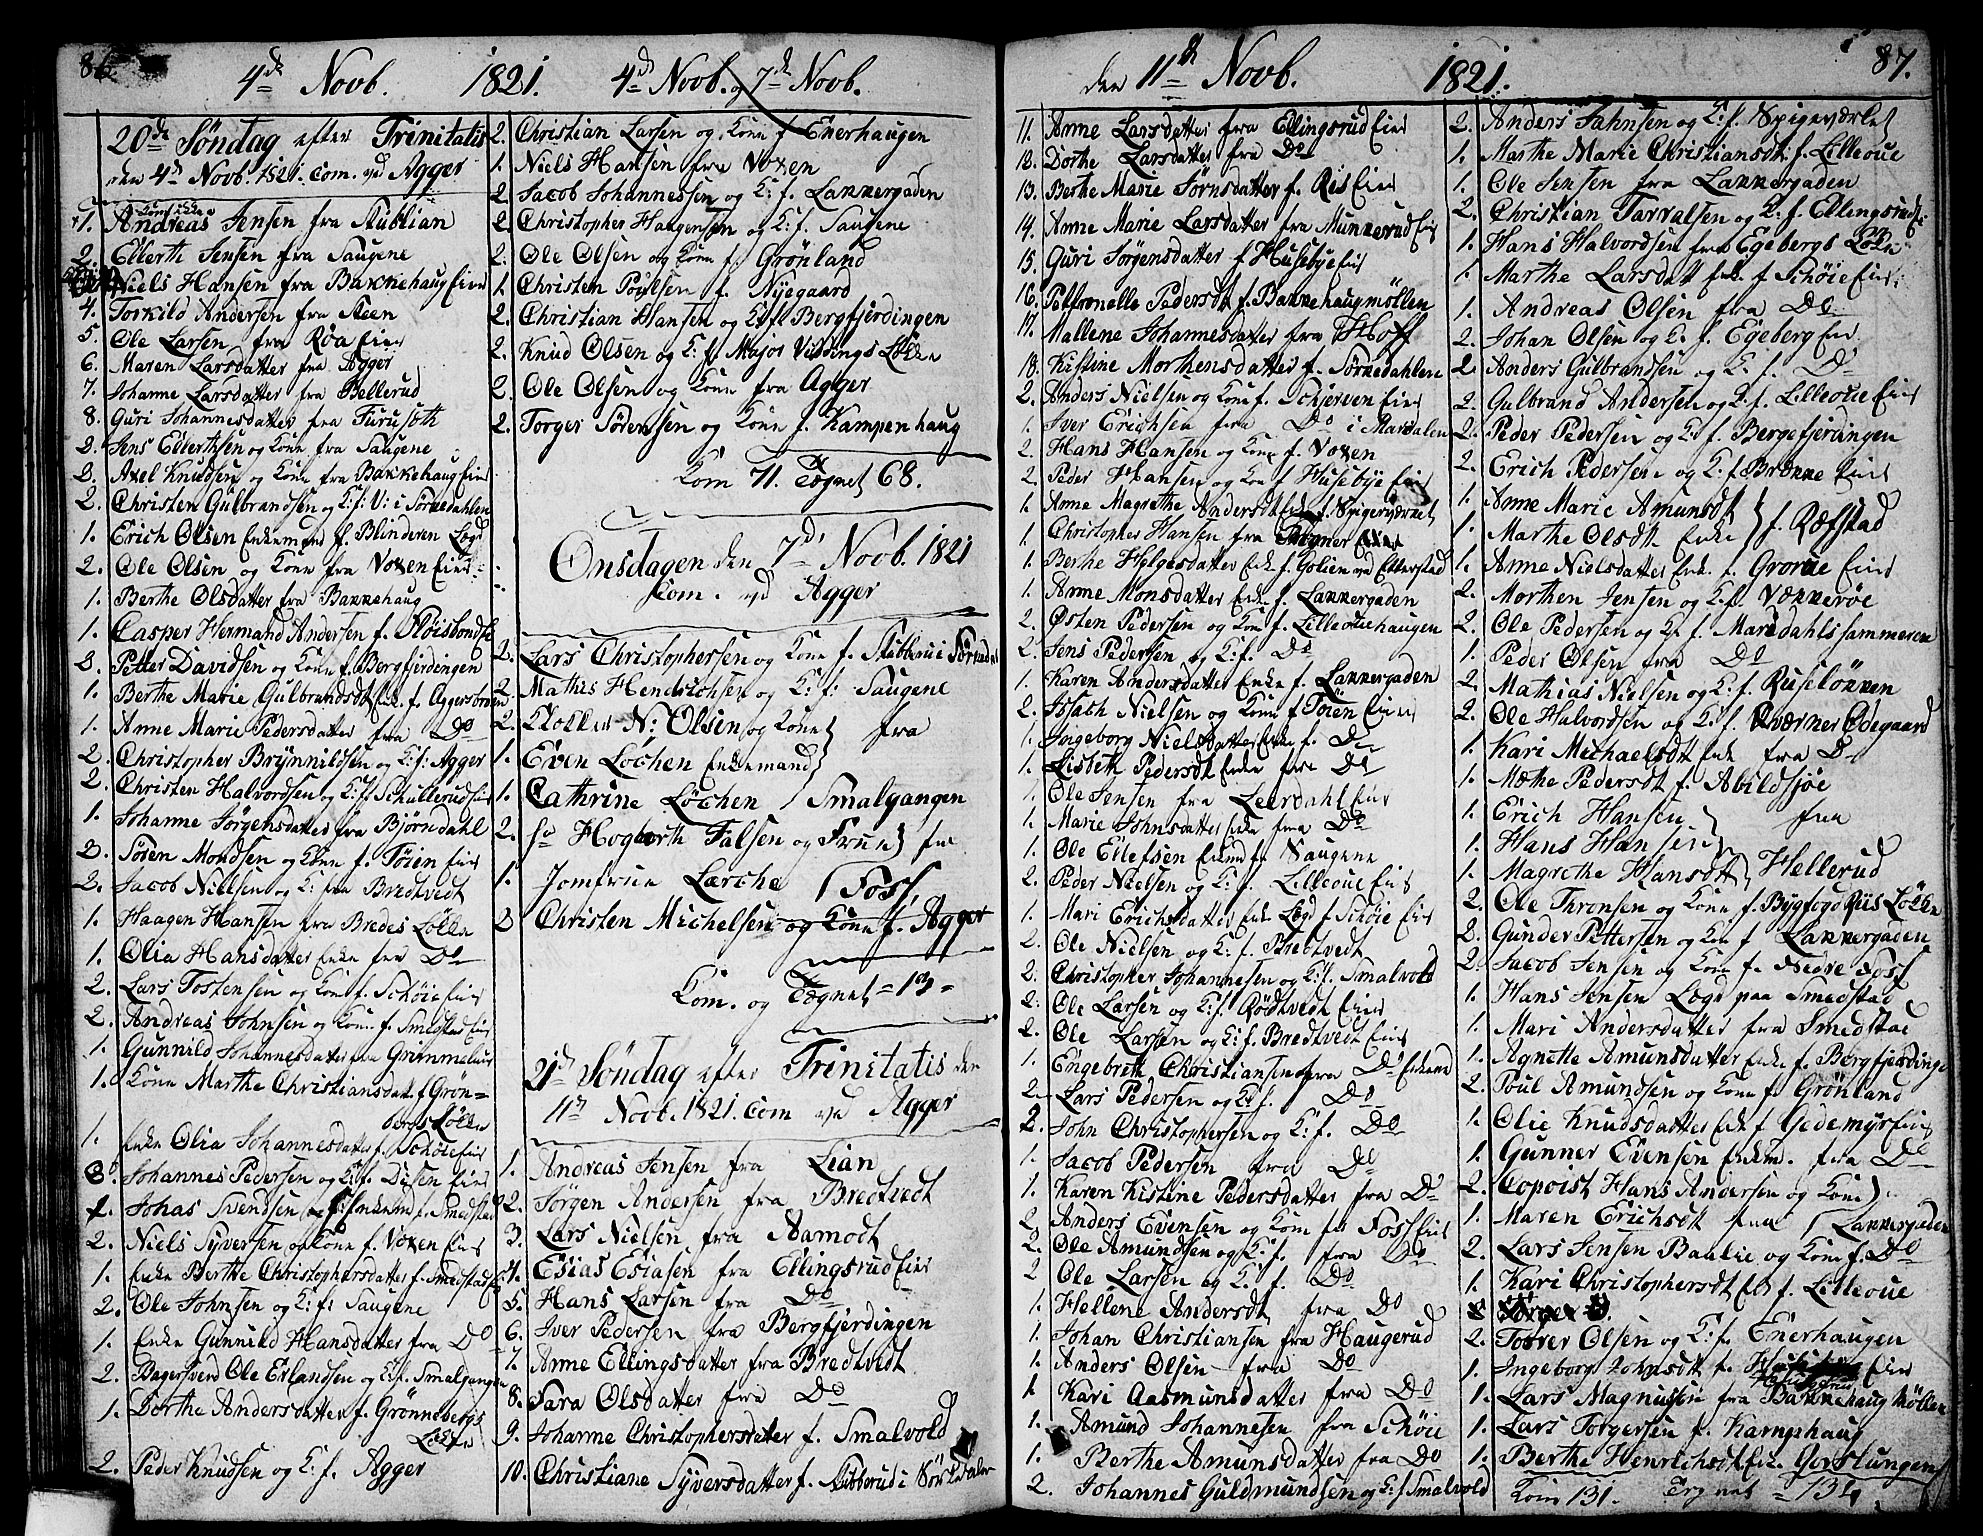 86.
4de Novb. 1821. 4de Novb. og 7de Novb.
20de Søndag efter Trinitatis
den 4de Novb. 1821. Com. ved Agger
1. Andreas Jensen fra
2. Ellert Jensen fra Saugene
Niels Hansen fra Bakkehaug Eier
4. Torkild Andersen fra Steen
5. Ole Larsen fra Røa Eier
6. Maren Larsdatter fra Agger
7. Johanne Larsdatter fra Hellerud
8. Guri Johannesdatter fra Furuseth
2. Jens Ellertsen og Kone fra Saugene
2. Axel Knudsen og Kone fra Bakkehaug Eier
2. Christen Gulbrandsen og K: f: V: i Sørkedahlen
1. Erich Olsen Enkemand f. Blinderen Lægd
2. Ole Olsen og Kone fra Voxen Eier
1. Berthe Olsdatter fra Bakkehaug
1. Casper Hermand Andersen f.
2. Petter Davidsen og Kone f. Bergfjerdingen
1. Berthe Marie Gulbrandsdt Enke f. Aggersbroen
1. Anne Marie Pedersdatter fra Do
2. Christopher Brynnildsen og K: f: Agger
2. Christen Halvordsen og K: f. Skullerud Eier
1. Johanne Jørgensdatter fra Bjørndahl
2. Søren Mondsen og Kone f. Tøien Eier
2. Jacob Nielsen og K: fra Bredtvedt
1. Haagen Hansen fra Bredes Løkke
1. Olia Hansdatter Enke fra Do
2. Lars Tostensen og Kone f. Schøie Eier
2. Andreas Johnsen og Kone f. Smestad Eier
1. Gunnild Johannesdatter fra
1. Kone Marthe Christiansdatt f. Grøn=
bergs Løkke
1. Enke Olia Johannesdatter f. Schøie Eier
Johannes Pedersen og K: f. Disen Eier
Johas Svendsen Enkem f. Smedstad
2. Niels Syversen og Kone f. Voxen Eier
1. Enke Berthe Christophersdatter f. Smedstad
2. Ole Johnsen og K: f: Saugene
1. Enke Gunnild Hansdatter fra Do
2. Bagersvend Ole Erlandsen og K: f. Smalgangen
1. Dorthe Andersdatter f. Grønnebergs
Løkke
2. Peder Knudsen og K: f. Agger
2. Christian Larsen og Kone f. Enerhaugen
1. Niels Hansen fra Voxen
2. Jacob Johannessen og K: f. Lakkergaden
2. Christopher Haagensen og K: f. Saugene
2. Ole Olsen og Kone f. Grønland
1. Christen Povelsen f. Nyegaard
2. Christian Hansen og K: f. Bergfjerdingen
2. Knud Olsen og K: f. Major Løkke
2. Ole Olsen og Kone fra Agger
2. Torger Sørensen og Kone f. Kampenhaug
Kom 71. Tegnet 68.
Onsdagen den 7de Novb. 1821
Kom. ved Agger
2. Lars Christophersen og Kone f. Stubberud i
2. Mathis Hendrichsen og K: f: Saugene
2. Klokker N: Olsen og Kone fra
1. Even Løchen Enkemand
1. Cathrine Løchen Smalgangen
2. Hr Hogborth Falsen og Frue fra
1. Jomfrue Lasche Foss
2 Christen Michelsen og Kone f. Agger
Kom. og Tegnet = 13 =
21de Søndag efter Trinitatis den
11te Novb. 1821. Com ved Agger
1. Andreas Jensen fra Lian
2. Jørgen Andersen fra Bredtvedt
3. Lars Nielsen fra Aamodt
4. Esias Esiasen fra Ellingsrud Eier
5. Hans Larsen fra Do
6. Iver Pedersen fra Bergfjerdingen
7. Anne Ellingsdatter fra Bredtvedt
8. Sara Olsdatter fra Do
9. Johanne Christophersdatter f. Smalvold
10. Christiane Syversdatter f. Stubberud i Sørkedalen
den 11te Novb. 1821. 87.
11. Anne Larsdatter fra Ellingsrud Eier
12. Dorthe Larsdatter fra Do
13. Berthe Marie Jørnsdatter f. Ris Eier
14. Anne Marie Larsdatter fra Munkerud Eier
15. Guri Jørgensdatter f. Husebye Eier
16. Pettronelle Pedersdt f. Bakkehaugmøllen
17. Mallene Johannesdatter fra Hoff
18. Kistine Morthensdatter f. Sørkedahlen
2. Anders Nielsen og Kone f. Eier
1. Iver Erichsen fra Do i Maridalen
2. Hans Hansen og Kone f. Voxen
2. Peder Hansen og Kone f Husebye Eier
1. Anne Magrethe Andersdt Enke f. Spigerværket
1. Christopher Hansen fra Eier
1. Berthe Helgesdatter Enke f. Golien ved Etterstad
1. Anne Monsdatter Enke f. Lakkergaden
2. Østen Pedersen og Kone f. Lilleouehaugen
2. Jens Pedersen og K: f. Do
1. Karen Andersdatter Enke f. Lakkergaden
2. Joseph Nielsen og Kone f Tøien Eier
1. Ingeborg Nielsdatter Enke f. Do
1. Lisbeth Pedersdt Enke fra Do
1. Ole Jensen fra Leerdahl Eier
1. Marie Johnsdatter Enke fra Do
1. Ole Ellefsen Enkmd f. Saugene
2. Peder Nielsen og K: f. Lilleoue Eier
1. Mari Erichsdatter Enke Lægd f. Schøie Eier
2. Ole Nielsen og K: f. Bredtvedt
2. Christopher Johannesen og K: f. Smalvold
2. Ole Larsen og K: f. Rødtvedt Eier
2. Ole Larsen og K: f. Bredtvedt Eier
1. Engebreth Christiansen fra Do Enkemd
2. Lars Pedersen og K: f. Do
2. John Christophersen og K: f. Do
1. Jacob Pedersen fra Do
1. Karen Kistine Pedersdatter fra Do
2. Anders Evensen og Kone fra Foss Eier
2. Ole Amundsen og K: f. fra Do
2 Ole Larsen og K: f. Do
1. Hellene Andersdt fra Do
1. Johan Christiansen fra Haugerud
1. Anders Olsen fra Do
1 Kari Aasmunsdatter fra Do
1. Amund Johannesen fra Schøie
1. Berthe Amunsdatter fra Do
2. Johannes Guldmundsen og K: f Smalvold
2. Anders Jahnsen og K: f. Spigeværket
1. Marthe Marie Christiansdt f. Lilleoue
1. Ole Jensen fra Lakkergaden
2. Christian Tarralsen og K: f. Ellingsrud Ei
1. Hans Halvordsen fra Egebergs Løkke
1. Marthe Larsdatt Enke f Schøie Eier
1. Andreas Olsen fra Do
2. Johan Olsen og K: f. Egeberg Eier
2. Anders Gulbrandsen og K: f. Do
2. Gulbrand Andersen og K: f. Lilleoue Eier
2. Peder Pedersen og K: f. Bergefjerdingen
2. Erich Pedersen og K: f. Brække Eier
1. Anne Marie Amunsdt
f. Ræfstad
1. Marthe Olsdt Enke
1. Anne Nielsdatter Enke f. Grorue Eier
2. Morthen Jensen og K: f. Vækkerøe
2. Ole Pedersen og K: f. Maridahlshammeren
1. Peder Olsen fra Do
2. Mathias Nielsen og K: f. Ruseløkken
2. Ole Halvordsen og K: f. Kværner Ødegaard
1. Kari Michaelsdt Enke fra Do
1. Mæthe Pedersdt f. Abildsjøe
1. Erich Hansen fra
1. Hans Hansen
1. Magrethe Hansdt Hellerud
2. Ole Thronsen og Kone f. Bygfogd Riis Løkke
2. Gunder Pettersen og Kone f Lakkergaden
2. Jacob Jensen og Kone f. Nedre Foss
1. Hans Jensen Lægd paa Smedstad
1. Mari Andersdatter fra Smedstad
1. Agnette Amunsdatter Enke f. Bergfjerdinge
2. Poul Amundsen og Kone f. Grønland
1. Olie Knudsdatter Enke f. Gedemyr Eier
1. Gunner Evensen Enkem. fra Do
2. Copoist Hans Andersen og Kone
1. Maren Erichsdt fra Lakkergaden
2. Lars Jensen Baalie og Kone f. Do
1. Kari Christophersdt Enke f. Lilleoue
2. Tosrer Olsen og K: f. Enerhaugen
1. Ingeborg Johnsdt f. Eier
1. Lars Magnusen fra Bakkehaug Møllen
1. Lars Torgersen f. Kamphaug
1. Berthe Henrichsdt Enke.
Kom 131. Tegnet = 134